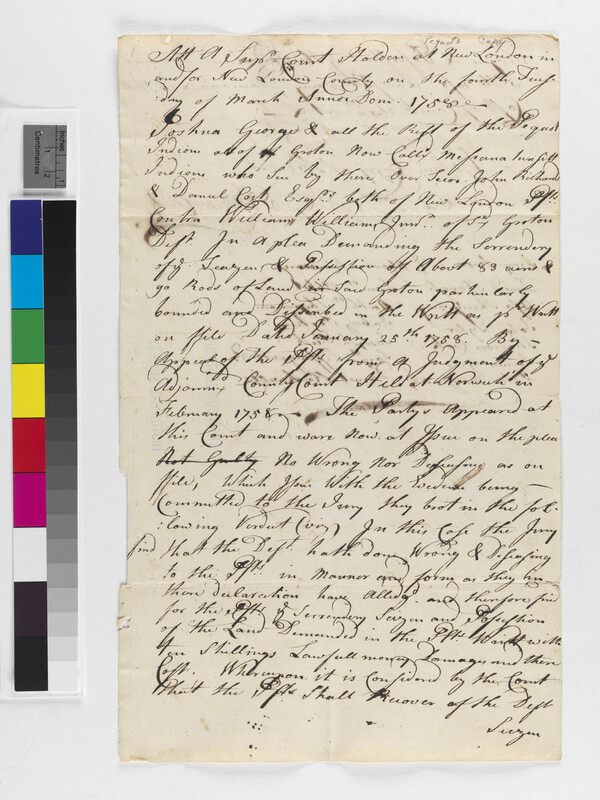 Pequots Copy
Att A Supr Court Holden at New London in
and for New London County on the fourth Tues
:day of March Annoe Dom: 1758
Joshua George & all the Rest of the Pequot
Indians all of Groton Now Calld
Indians who Sue by there Over Seers John Richards
& Daniel Coit Esqrs both of New London Plts
Contra William Williams Junr of sd Groton
Deft In A plea Demanding the Surrendery
of ye Seazen & Possession of About 83 acres &
90 Rods of Land in Said Groton particularly
bounded and Discribed in the Writt as pr Writt
on ffile Dated January 25th 1758. By
Appeal of the Plts from A Judgment of ye
Adjornd County Court Held at Norwich in
February 1758 The Partys Appeared at
this Court and ware Now at Issue on the plea
Not Guilty No Wrong Nor Disseasing as on
ffile, Which Issue With the Evidence being
Committed to the Jury they brot in the fol-
:lowing Verdict (viz) In this Case the Jury
find that the Deft hath done Wrong & Diseasing
to the Plts in Manner and form as they in
there declaration have Alledgd and therefore find
for the Plts ye Surrendry Seizen and Possestion
of the Land Demanded in the Plts Writt with
ten Shillings Lawfull money Damages and there
Cost. Whereupon it is Considered by the Court
that the Plts Shall Recover of the Deft
Seizen
Centimetres
Inches